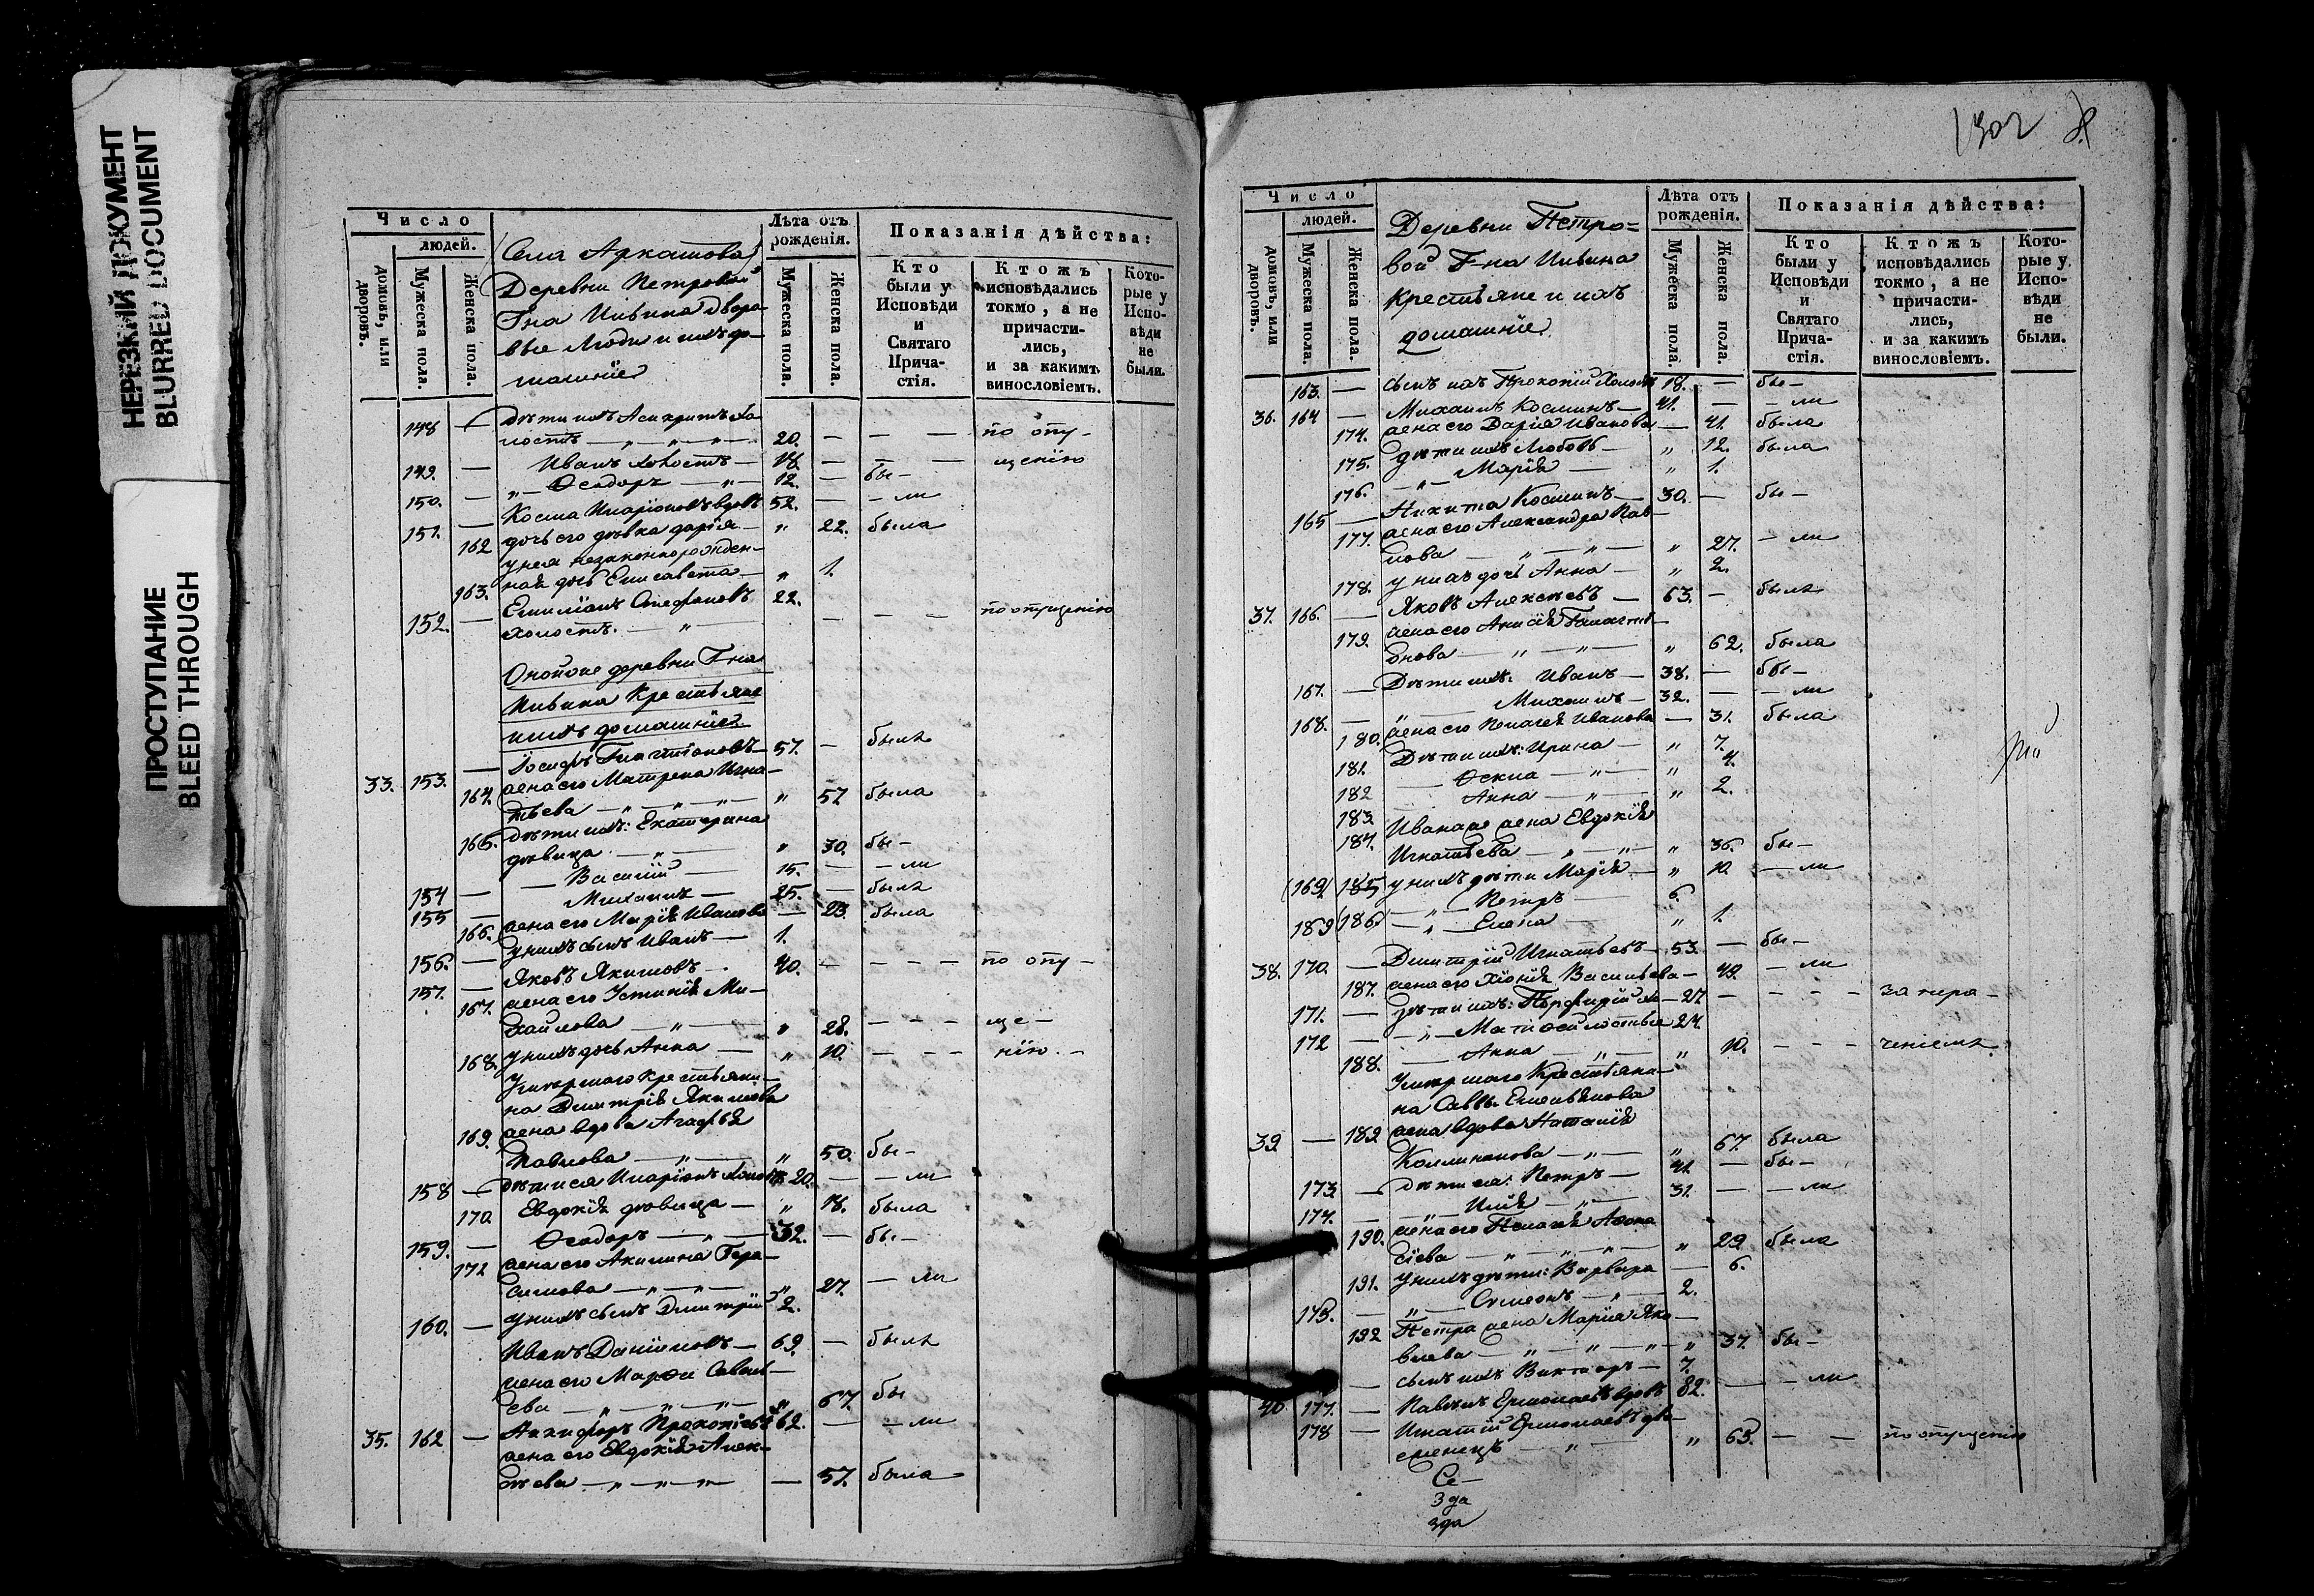 НЕРЕЗКИЙ ДОКУМЕНТ
BLURRED DOCUMENT
ПРОСТУПАНИЕ
BLEED THROUGH
Число
людей.
домовъ, или дворовъ.
Мужеска пола.
Женска пола.
Села Аркатова
Деревни Петровой
Г-на Ивина Дворо
вые Люди и ихъ до
машніе
Лѣта отъ рожденія.
Мужеска пола.
Женска пола.
Показанія дѣйства:
Кто были у Исповѣди и Святаго Прича-стія.
Ктожъ исповѣдались токмо, а не причасти-лись, и за какимъ винословіемъ.
Кото-рые у Испо-вѣди не были.
148 — дѣти ихъ Асинкритъ хо
лостъ — „ — „ — „ — 20. — — — по опу-
149. — Иванъ холостъ — 18. — — — щенію
150. — „ — Ѳеодоръ — „ — 12. — бы-
151. — Косма Иларіоновъ вдовъ 52. — ли
162 дочь его дѣвка Дарія — „ 22. была
у нея незаконнорожден-
163. ная дочь Елисавета — „ 1.
152. — Емиліанъ Стефановъ 22.
холостъ. — „ — — — — по опущенію
Оной же деревни Г-на
Ивина Крестьяне
и ихъ домашніе
33. 153. — Іосифъ Галактіоновъ — 57. — былъ
164. жена его Матрена Игна-
тьева — „ — „ — „ — „ 57 была
165. дѣти ихъ: Екатерина
дѣвица — „ — „ 30. бы-
154 — Василій — 15. — — ли
155 — Михаилъ — 25. — былъ
166. жена его Марія Иванова — 23. была
156. — у нихъ сынъ Иванъ — 1.
157. — Яковъ Якимовъ — 40. — — — — по опу-
167. жена его Устинія Ми-
хайлова — „ — „ 28. — — — ще-
168. у нихъ дочь Анна — „ 10. — — — нію. —
Умершаго крестьяни-
на Дмитрія Якимова
169. жена вдова Агафья
Павлова — „ — „ 50. бы-
158 — дѣти ея Иларіонъ холостъ 20. — — ли
170. Евдокія дѣвица — „ 18. была
159. — Ѳеодоръ — „ — 32. — бы-
171 жена его Акилина Гера-
симова — „ — „ — „ 27. — ли
160. — у нихъ сынъ Димитрій 2.
Иванъ Даніиловъ — 69. — былъ
жена его Марѳа Савель-
ева — „ — „ — „ — „ 67. бы
35. 162 — Никифоръ Прокопіевъ 62. — — ли
жена его Евдокія Алек-
сѣева — „ — „ — „ — — 57. была
1302
Число
людей.
домовъ, или дворовъ.
Мужеска пола.
Женска пола.
Деревни Петро=
вой Г-на Ивина
крестьяне и ихъ
домашніе.
Лѣта отъ рожденія.
Мужеска пола.
Женска пола.
Показанія дѣйства:
Кто были у Исповѣди и Святаго Прича-стія.
Ктожъ исповѣдались токмо, а не причасти-лись, и за какимъ винословіемъ.
Кото-рые у Испо-вѣди не были.
163. — сынъ ихъ Прокопій холостъ 18. — бы-
36. 164 — Михаилъ Косминъ — 41. — — ли
174. жена его Дарія Иванова — 41. была
175. дѣти ихъ Любовь — „ 12. была
176. — „ — Марія — „ 1.
165 — Никита Косминъ — 30. — бы-
177. жена его Александра Пав-
лова — „ — „ — „ 27. — ли
178. у нихъ дочь Анна — „ 2.
37. 166. — Яковъ Алексѣевъ — 63. — былъ
179. жена его Анисія Галактіо-
нова — „ — „ — „ 62. была
167. — Дѣти ихъ: Иванъ — 38. — бы-
168. — „ — Михаилъ — 32. — — ли
180. жена его Пелагея Иванова — 31. была
181. Дѣти ихъ: Ирина — „ 7.
182 — Ѳекла — „ — „ 4.
183 Анна — „ — „ 2.
184. Ивана же жена Евдокія
Игнатьева — „ — „ — „ 36. бы-
169 185 у нихъ дѣти Марія — „ 10. — ли
— „ — Петръ — 6.
169 186 — „ — Елена — „ 1.
38. 170. — Димитрій Игнатьевъ — 53. — бы-
187. жена его Хіонія Васильева — 49. — ли
171. — дѣти ихъ: Порфирій хо — 27. — — — — за пора-
172 — „ — Матѳей лостые 24.
188. — Анна — „ — „ 10. — — — ченіемъ.
Умершаго Крестьяни-
на Саввы Емельянова
39. — 189 жена вдова Наталія
Каллиникова — „ — „ 67. была
173. — дѣти ея: Петръ — 41. — бы-
174. — „ — Илія — „ — 31. — — ли
190. жена его Пелагія Аѳана
сіева — „ — „ — „ — „ 29. была
191. у нихъ дѣти: Варвара — 6.
175. — „ — Симеонъ — „ — 2.
192 Петра жена Марія Яко-
влева — „ — „ — „ — „ 37. бы-
— сынъ ихъ Викторъ — 7.
40 177. — Павелъ Ермолаевъ вдовъ 82. — — ли
178 — Игнатій Ермолаевъ дво-
еженецъ — „ — „ 65. — — по опущенію
Се-
3 да
3да